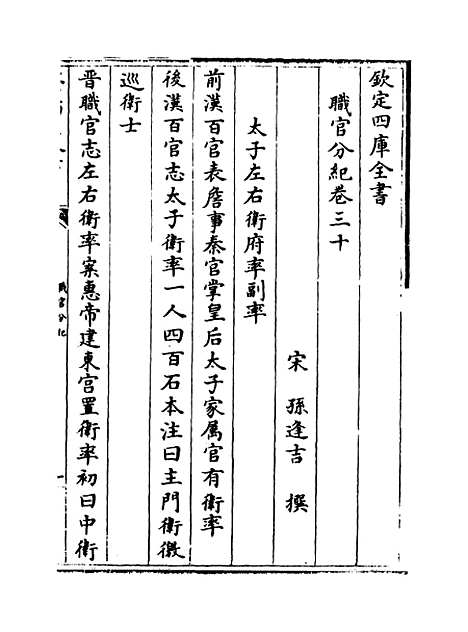 欽定四庫全書
職官分紀卷三十
宋 孫逢吉 撰
太子左右衛府率副率
前漢百官表詹事秦官掌皇后太子家属官有衛率
後漢百官志太子衛率一人四百石本注曰主門衛徼
巡衛士
晋職官志左右衛率案惠帝建東宫置衛率初曰中衛
職官分紀
一